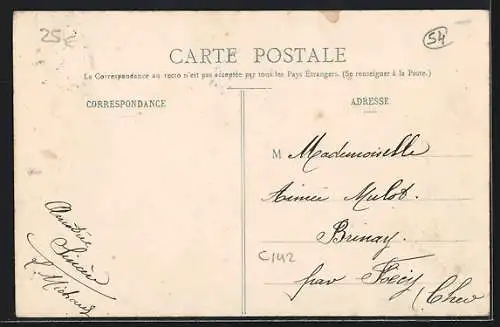 25€
54
CARTE POSTALE
La Correspondance au recto n'est pas acceptée par tous les Pays Étrangers. (Se renseigner à la Poste.)
CORRESPONDANCE
ADRESSE
M Mademoiselle
Aimée Mulot.
Brinay.
par Foëcy
Cher
C142
Amitiés
Sincères